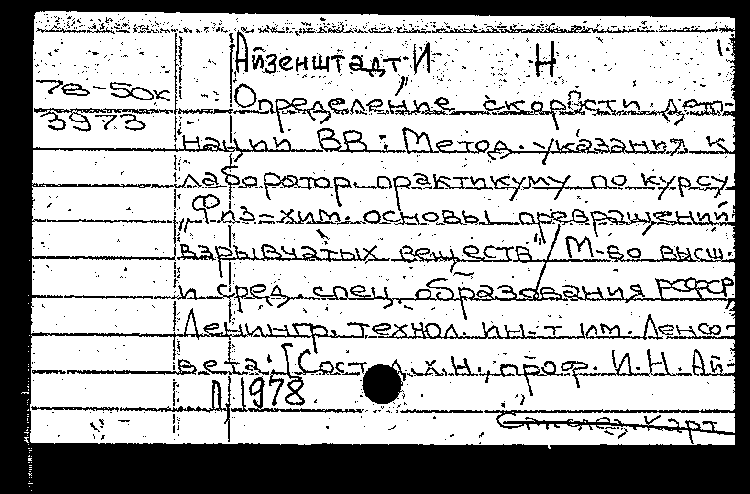 Айзенштадт И Н 1.
78-50к Определение скорости дето-
3973 нации ВВ: Метод. указания к
лаборатор. практикуму по курсу
„Физ-хим. основы превращений
взрывчатых веществ" / М-во высш.
и сред. спец. образования РСФСР,
Ленингр. технол. ин-т им. Ленсо-
вета; [Сост. д.х.н., проф. И.Н. Ай-
Л 1978
карт